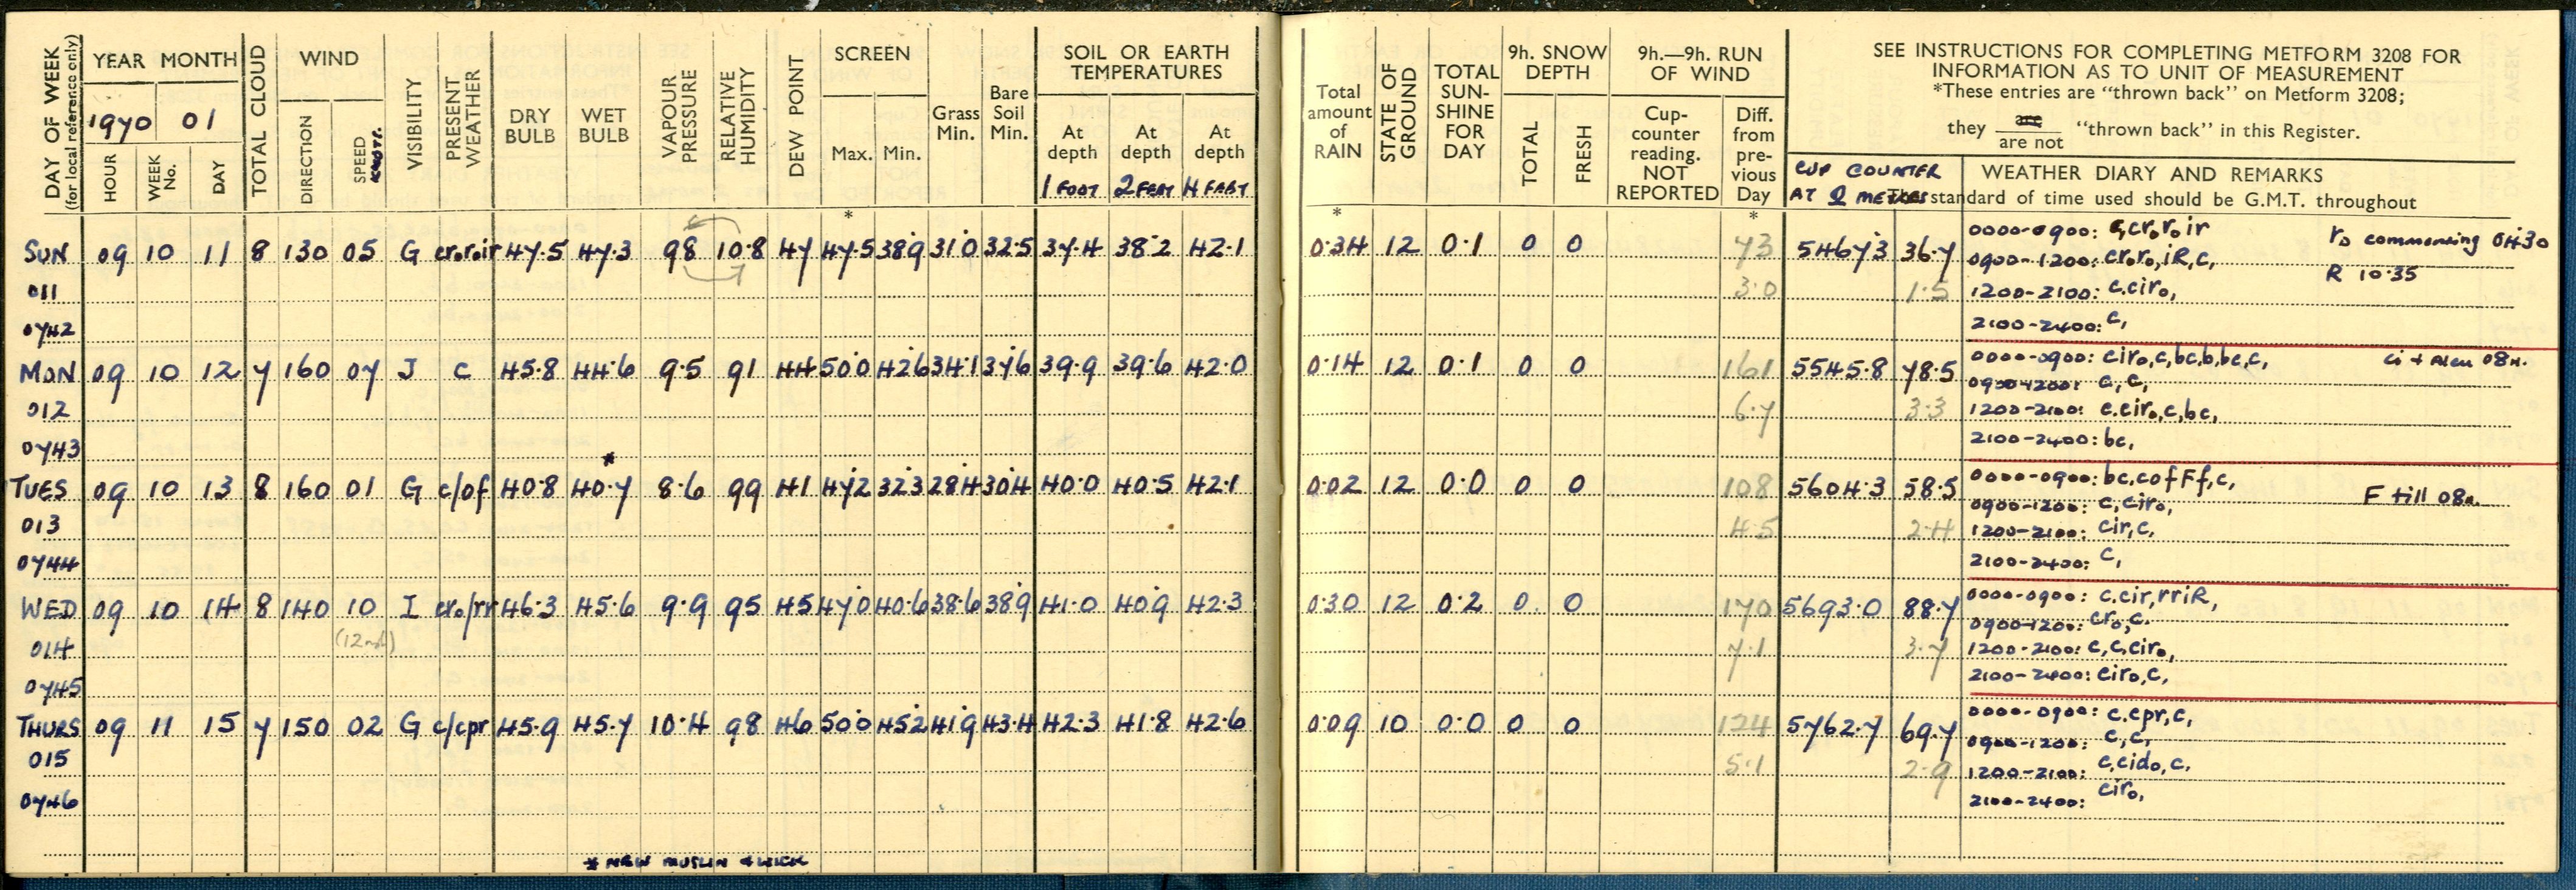 DAY OF WEEK (for local reference only)
YEAR MONTH
1970 01
HOUR WEEK No. DAY
TOTAL CLOUD
WIND
DIRECTION SPEED KNOTS.
VISIBILITY
PRESENT WEATHER
DRY BULB
WET BULB
VAPOUR PRESSURE
RELATIVE HUMIDITY
DEW POINT
SCREEN
Max. Min.
Grass Min.
Bare Soil Min.
SOIL OR EARTH TEMPERATURES
At depth At depth At depth
1 FOOT 2 FEET 4 FEET
Total amount of RAIN
STATE OF GROUND
TOTAL SUN-SHINE FOR DAY
9h. SNOW DEPTH
TOTAL FRESH
9h.—9h. RUN OF WIND
Cup-counter reading. NOT REPORTED
Diff. from pre-vious Day
SEE INSTRUCTIONS FOR COMPLETING METFORM 3208 FOR
INFORMATION AS TO UNIT OF MEASUREMENT
*These entries are "thrown back" on Metform 3208;
they are / are not "thrown back" in this Register.
CUP COUNTER AT 2 METRES
WEATHER DIARY AND REMARKS
The standard of time used should be G.M.T. throughout
* * *
SUN 09 10 11 8 130 05 G cr.r.ir 47.5 47.3 98 10.8 47 47.5 38.9 31.0 32.5 37.4 38.2 42.1 0.34 12 0.1 0 0 73 5467.3 36.7 0000-0900: c,cr₀r₀ir r₀ commencing 0430
0900-1200: cr₀r₀,iR,c, R 10.35
011 3.0 1.5 1200-2100: c.cir₀,
0742 2100-2400: c,
MON 09 10 12 7 160 07 J c 45.8 44.6 9.5 91 44 50.0 42.6 34.1 37.6 39.9 39.6 42.0 0.14 12 0.1 0 0 161 5545.8 78.5 0000-0900: cir₀,c,bc,b,bc,c,
0900-1200: c,c,
012 6.7 3.3 1200-2100: c.cir₀,c,bc,
0743 2100-2400: bc,
*
TUES 09 10 13 8 160 01 G c/of 40.8 40.7 8.6 99 41 47.2 32.3 28.4 30.4 40.0 40.5 42.1 0.02 12 0.0 0 0 108 5604.3 58.5 0000-0900: bc,cofFf,c, F till 08h.
0900-1200: c,cir₀,
013 4.5 2.4 1200-2100: cir,c,
0744 2100-2400: c,
WED 09 10 14 8 140 10 I cr₀/rr 46.3 45.6 9.9 95 45 47.0 40.6 38.6 38.9 41.0 40.9 42.3 0.30 12 0.2 0 0 170 5693.0 88.7 0000-0900: c.cir,rriR,
0900-1200: cr₀,c.
014 7.1 3.7 1200-2100: c,c,cir₀,
0745 2100-2400: cir₀,c,
THURS 09 11 15 7 150 02 G c/cpr 45.9 45.7 10.4 98 46 50.0 45.2 41.9 43.4 42.3 41.8 42.6 0.09 10 0.0 0 0 124 5762.7 69.7 0000-0900: c.cpr,c,
0900-1200: c,c,
015 5.1 2.9 1200-2100: c,cid₀,c,
0746 2100-2400: cir₀,
* NEW MUSLIN & WICK